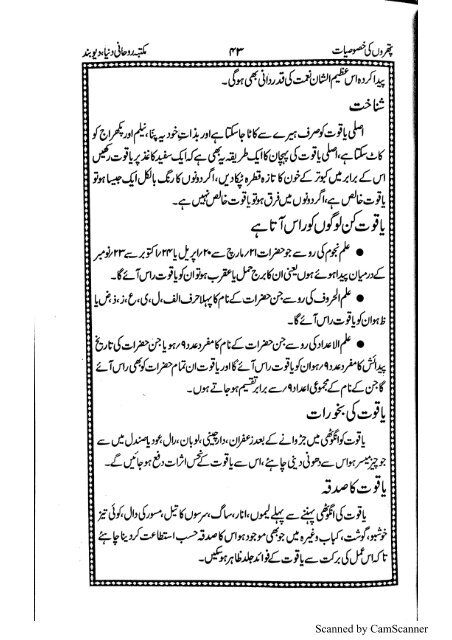 پتھروں کی خصوصیات ۴۳ مکتبہ روحانی دنیا، دیوبند
پیدا کردہ اس عظیم الشان نعمت کی قدردانی بھی ہوگی۔
شناخت
اصلی یاقوت کو صرف ہیرے سے کاٹا جا سکتا ہے اور بذاتِ خود یہ پنّا، نیلم اور پکھراج کو
کاٹ سکتا ہے، اصلی یاقوت کی پہچان کا ایک طریقہ یہ بھی ہے کہ ایک سفید کاغذ پر یاقوت رکھیں
اس کے برابر میں کبوتر کے خون کا تازہ قطرہ ٹپکا دیں، اگر دونوں کا رنگ بالکل ایک جیسا ہو تو
یاقوت خالص ہے، اگر دونوں میں فرق ہو تو یاقوت خالص نہیں ہے۔
یاقوت کن لوگوں کو راس آتا ہے
● علم نجوم کی رو سے جو حضرات ۲۱؍ مارچ سے ۲۰؍ اپریل یا ۲۴؍ اکتوبر سے ۲۳؍ نومبر
کے درمیان پیدا ہوئے ہوں یعنی ان کا برج حمل یا عقرب ہو تو ان کو یاقوت راس آئے گا۔
● علم الحروف کی رو سے جن حضرات کے نام کا پہلا حرف الف، ل، ی، ع، ز، ذ، ض یا
ظ ہو ان کو یاقوت راس آئے گا۔
● علم الاعداد کی رو سے جن حضرات کے نام کا مفرد عدد ۹؍ ہو یا جن حضرات کی تاریخ
پیدائش کا مفرد عدد ۹؍ ہو ان کو یاقوت راس آئے گا اور یاقوت ان تمام حضرات کو بھی راس آئے
گا جن کے نام کے مجموعی اعداد ۹؍ سے برابر تقسیم ہو جاتے ہوں۔
یاقوت کی بخورات
یاقوت کو انگوٹھی میں جڑوانے کے بعد زعفران، دارچینی، لوبان، رال، عود یا صندل میں سے
جو چیز میسر ہو اس سے دھونی دینی چاہئے، اس سے یاقوت کے نحس اثرات دفع ہو جائیں گے۔
یاقوت کا صدقہ
یاقوت کی انگوٹھی پہننے سے پہلے لیموں، انار، ساگ، سرسوں کا تیل، مسور کی دال، کوئی تیز
خوشبو، گوشت، کباب وغیرہ میں جو بھی موجود ہو اس کا صدقہ حسب استطاعت کر دینا چاہئے
تاکہ اس عمل کی برکت سے یاقوت کے فوائد جلد ظاہر ہو سکیں۔
Scanned by CamScanner